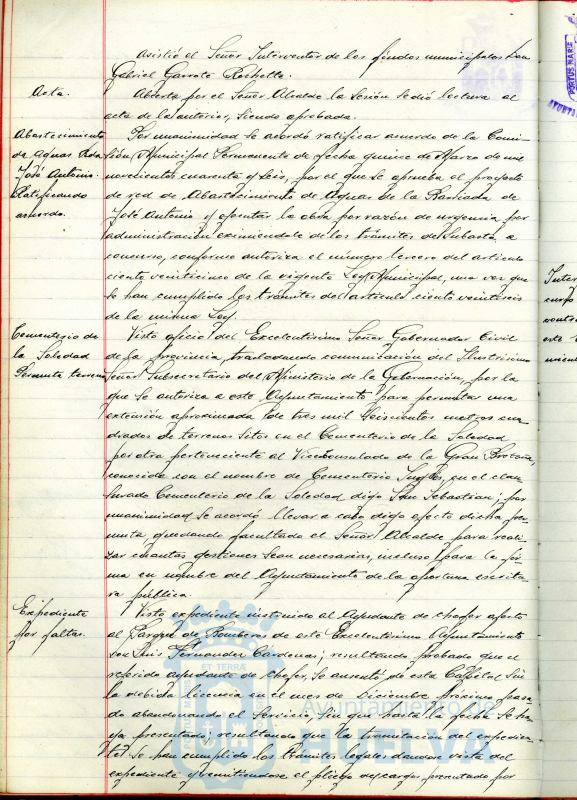 Asistió el Señor Interventor de los fondos municipales Don
Gabriel Garrote Rochette.
Acta.
Abierta por el Señor Alcalde la Sesión se dió lectura al
acta de la anterior, siendo aprobada.
Abastecimiento
de aguas Bda.
José Antonio.
Ratificando
acuerdo.
Por unanimidad se acordó ratificar acuerdo de la Comi-
sión Municipal Permanente de fecha quince de Marzo de mil
novecientos cuarenta y seis, por el que se aprueba el proyecto
de red de Abastecimiento de Aguas de la Barriada de
José Antonio y ejecutar la obra por razón de urgencia por
administración eximiéndole de los trámites de Subasta o
concurso, conforme autoriza el número tercero del artículo
ciento veinticinco de la vigente Ley Municipal, una vez que
se han cumplido los trámites del artículo ciento veintiseis
de la misma Ley.
Cementerio de
la Soledad
Permuta terreno
Visto oficio del Excelentísimo Señor Gobernador Civil
de la provincia, trasladando comunicación del Ilustrísimo
Señor Subsecretario del Ministerio de la Gobernación, por la
que se autoriza a este Ayuntamiento para permutar una
extensión aproximada de tres mil seiscientos metros cua-
drados de terrenos sitos en el Cementerio de la Soledad
por otra perteneciente al Viceconsulado de la Gran Bretaña,
conocida con el nombre de Cementerio Inglés, en el clau-
surado Cementerio de la Soledad digo San Sebastian; por
unanimidad se acordó llevar a cabo digo efecto dicha per-
muta, quedando facultado el Señor Alcalde para reali-
zar cuantas gestiones sean necesarias, incluso para la fir-
ma en nombre del Ayuntamiento de la oportuna escritu-
ra pública.
Expediente
por faltas.
Visto expediente instruido al Ayudante de chofer afecto
al Parque de Bomberos de este Excelentísimo Ayuntamiento
Don Luis Fernandez Cardenas; resultando probado que el
referido ayudante de chofer, se ausentó de esta Capital sin
la debida licencia en el mes de Diciembre próximo pasa-
do abandonando el servicio, sin que hasta la fecha se ha-
ya presentado; resultando que en la tramitación del expedien-
te se han cumplido los trámites legales dandose vista del
expediente y remitiendose el pliego de cargos, presentado por
Ayuntamiento de
HUELVA